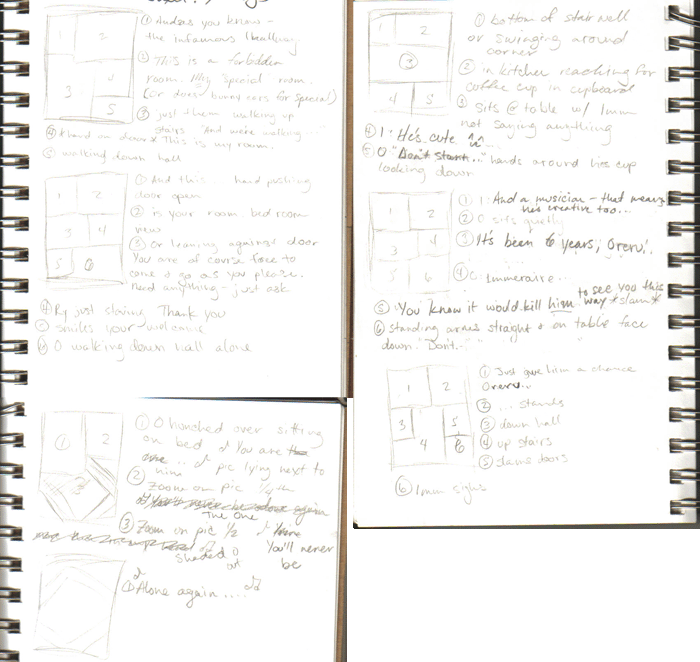 1 2 3 4 5
① And as you know -
the infamous hallway.
② This is a forbidden
room. My special room.
(Or does bunny ears for special)
③ just them walking up
stairs "And we're walking..."
④ hand on door This is my room.
⑤ walking down hall
1 2 3 4 5 6
① And this... hand pushing
door open
② is your room. bed room
view
③ Or leaning against door
You are of course free to
come & go as you please.
need anything - just ask
④ Ry just staring Thank you
⑤ smiles your welcome
⑥ O walking down hall alone
1 2 3
① O hunched over sitting
on bed ♪ You are the
one.. ♪ pic lying next to
him
② Zoom on pic 1/4th
The One
③ Zoom on pic 1/2
You'll never
be
shaded O
out
① Alone again.... ♪
1 2 3 4 5
① bottom of stairwell
or swinging around
corner
② in kitchen reaching for
coffee cup in cupboard
③ sits @ table w/ Imm
not saying anything
④ I: He's cute ^^...
⑤ O "Don't start..." hands around his cup
looking down
1 2 3 4 5 6
① I: And a musician - that means
he's creative too...
② O sits quietly
③ It's been 6 years, Oreru.
④ O: Immeraire...
⑤ You know it would kill him to see you this
way *slam*
⑥ standing arms straight & on table face
down. "Don't-"
1 2 3 4 5 6
① Just give him a chance
Oreru..
② ... stands
③ down hall
④ up stairs
⑤ slams doors
⑥ Imm sighs